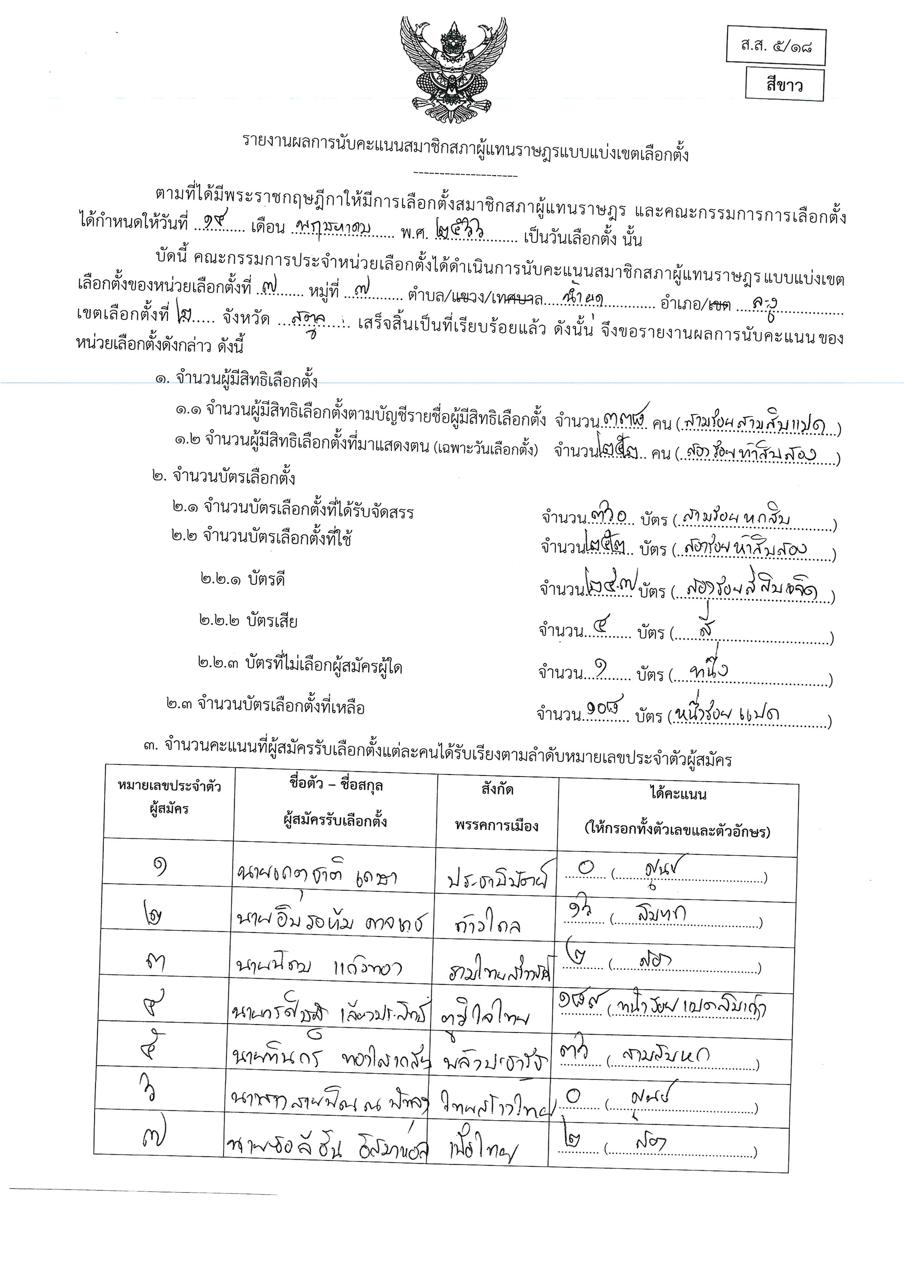 ส.ส. ๕/๑๘
สีขาว
รายงานผลการนับคะแนนสมาชิกสภาผู้แทนราษฎรแบบแบ่งเขตเลือกตั้ง
--------------------
ตามที่ได้มีพระราชกฤษฎีกาให้มีการเลือกตั้งสมาชิกสภาผู้แทนราษฎร และคณะกรรมการการเลือกตั้ง
ได้กำหนดให้วันที่ ๑๔ เดือน พฤษภาคม พ.ศ. ๒๕๖๖ เป็นวันเลือกตั้ง นั้น
บัดนี้ คณะกรรมการประจำหน่วยเลือกตั้งได้ดำเนินการนับคะแนนสมาชิกสภาผู้แทนราษฎรแบบแบ่งเขต
เลือกตั้งของหน่วยเลือกตั้งที่ ๗ หมู่ที่ ๗ ตำบล/แขวง/เทศบาล น้ำผุด อำเภอ/เขต ละงู
เขตเลือกตั้งที่ ๒ จังหวัด สตูล เสร็จสิ้นเป็นที่เรียบร้อยแล้ว ดังนั้น จึงขอรายงานผลการนับคะแนนของ
หน่วยเลือกตั้งดังกล่าว ดังนี้
๑. จำนวนผู้มีสิทธิเลือกตั้ง
๑.๑ จำนวนผู้มีสิทธิเลือกตั้งตามบัญชีรายชื่อผู้มีสิทธิเลือกตั้ง จำนวน ๓๓๘ คน (สามร้อยสามสิบแปด)
๑.๒ จำนวนผู้มีสิทธิเลือกตั้งที่มาแสดงตน (เฉพาะวันเลือกตั้ง) จำนวน ๒๕๒ คน (สองร้อยห้าสิบสอง)
๒. จำนวนบัตรเลือกตั้ง
๒.๑ จำนวนบัตรเลือกตั้งที่ได้รับจัดสรร จำนวน ๓๖๐ บัตร (สามร้อยหกสิบ)
๒.๒ จำนวนบัตรเลือกตั้งที่ใช้ จำนวน ๒๕๒ บัตร (สองร้อยห้าสิบสอง)
๒.๒.๑ บัตรดี จำนวน ๒๔๗ บัตร (สองร้อยสี่สิบเจ็ด)
๒.๒.๒ บัตรเสีย จำนวน ๔ บัตร (สี่)
๒.๒.๓ บัตรที่ไม่เลือกผู้สมัครผู้ใด จำนวน ๑ บัตร (หนึ่ง)
๒.๓ จำนวนบัตรเลือกตั้งที่เหลือ จำนวน ๑๐๘ บัตร (หนึ่งร้อยแปด)
๓. จำนวนคะแนนที่ผู้สมัครรับเลือกตั้งแต่ละคนได้รับเรียงตามลำดับหมายเลขประจำตัวผู้สมัคร
หมายเลขประจำตัว ชื่อตัว – ชื่อสกุล สังกัด ได้คะแนน
ผู้สมัคร ผู้สมัครรับเลือกตั้ง พรรคการเมือง (ให้กรอกทั้งตัวเลขและตัวอักษร)
๑ นายเกตุชาติ เกษา ประชาธิปัตย์ ๐ (ศูนย์)
๒ นายอิบรอหีม ก้าวไกล ๑๖ (สิบหก)
๓ นายนิคม แก้วทอง รวมไทยสร้างชาติ ๒ (สอง)
๔ เลียงประสิทธิ์ ภูมิใจไทย ๑๘๙ (หนึ่งร้อยแปดสิบเก้า)
๕ พลังประชารัฐ ๓๖ (สามสิบหก)
๖ ไทยสร้างไทย ๐ (ศูนย์)
๗ เพื่อไทย ๒ (สอง)